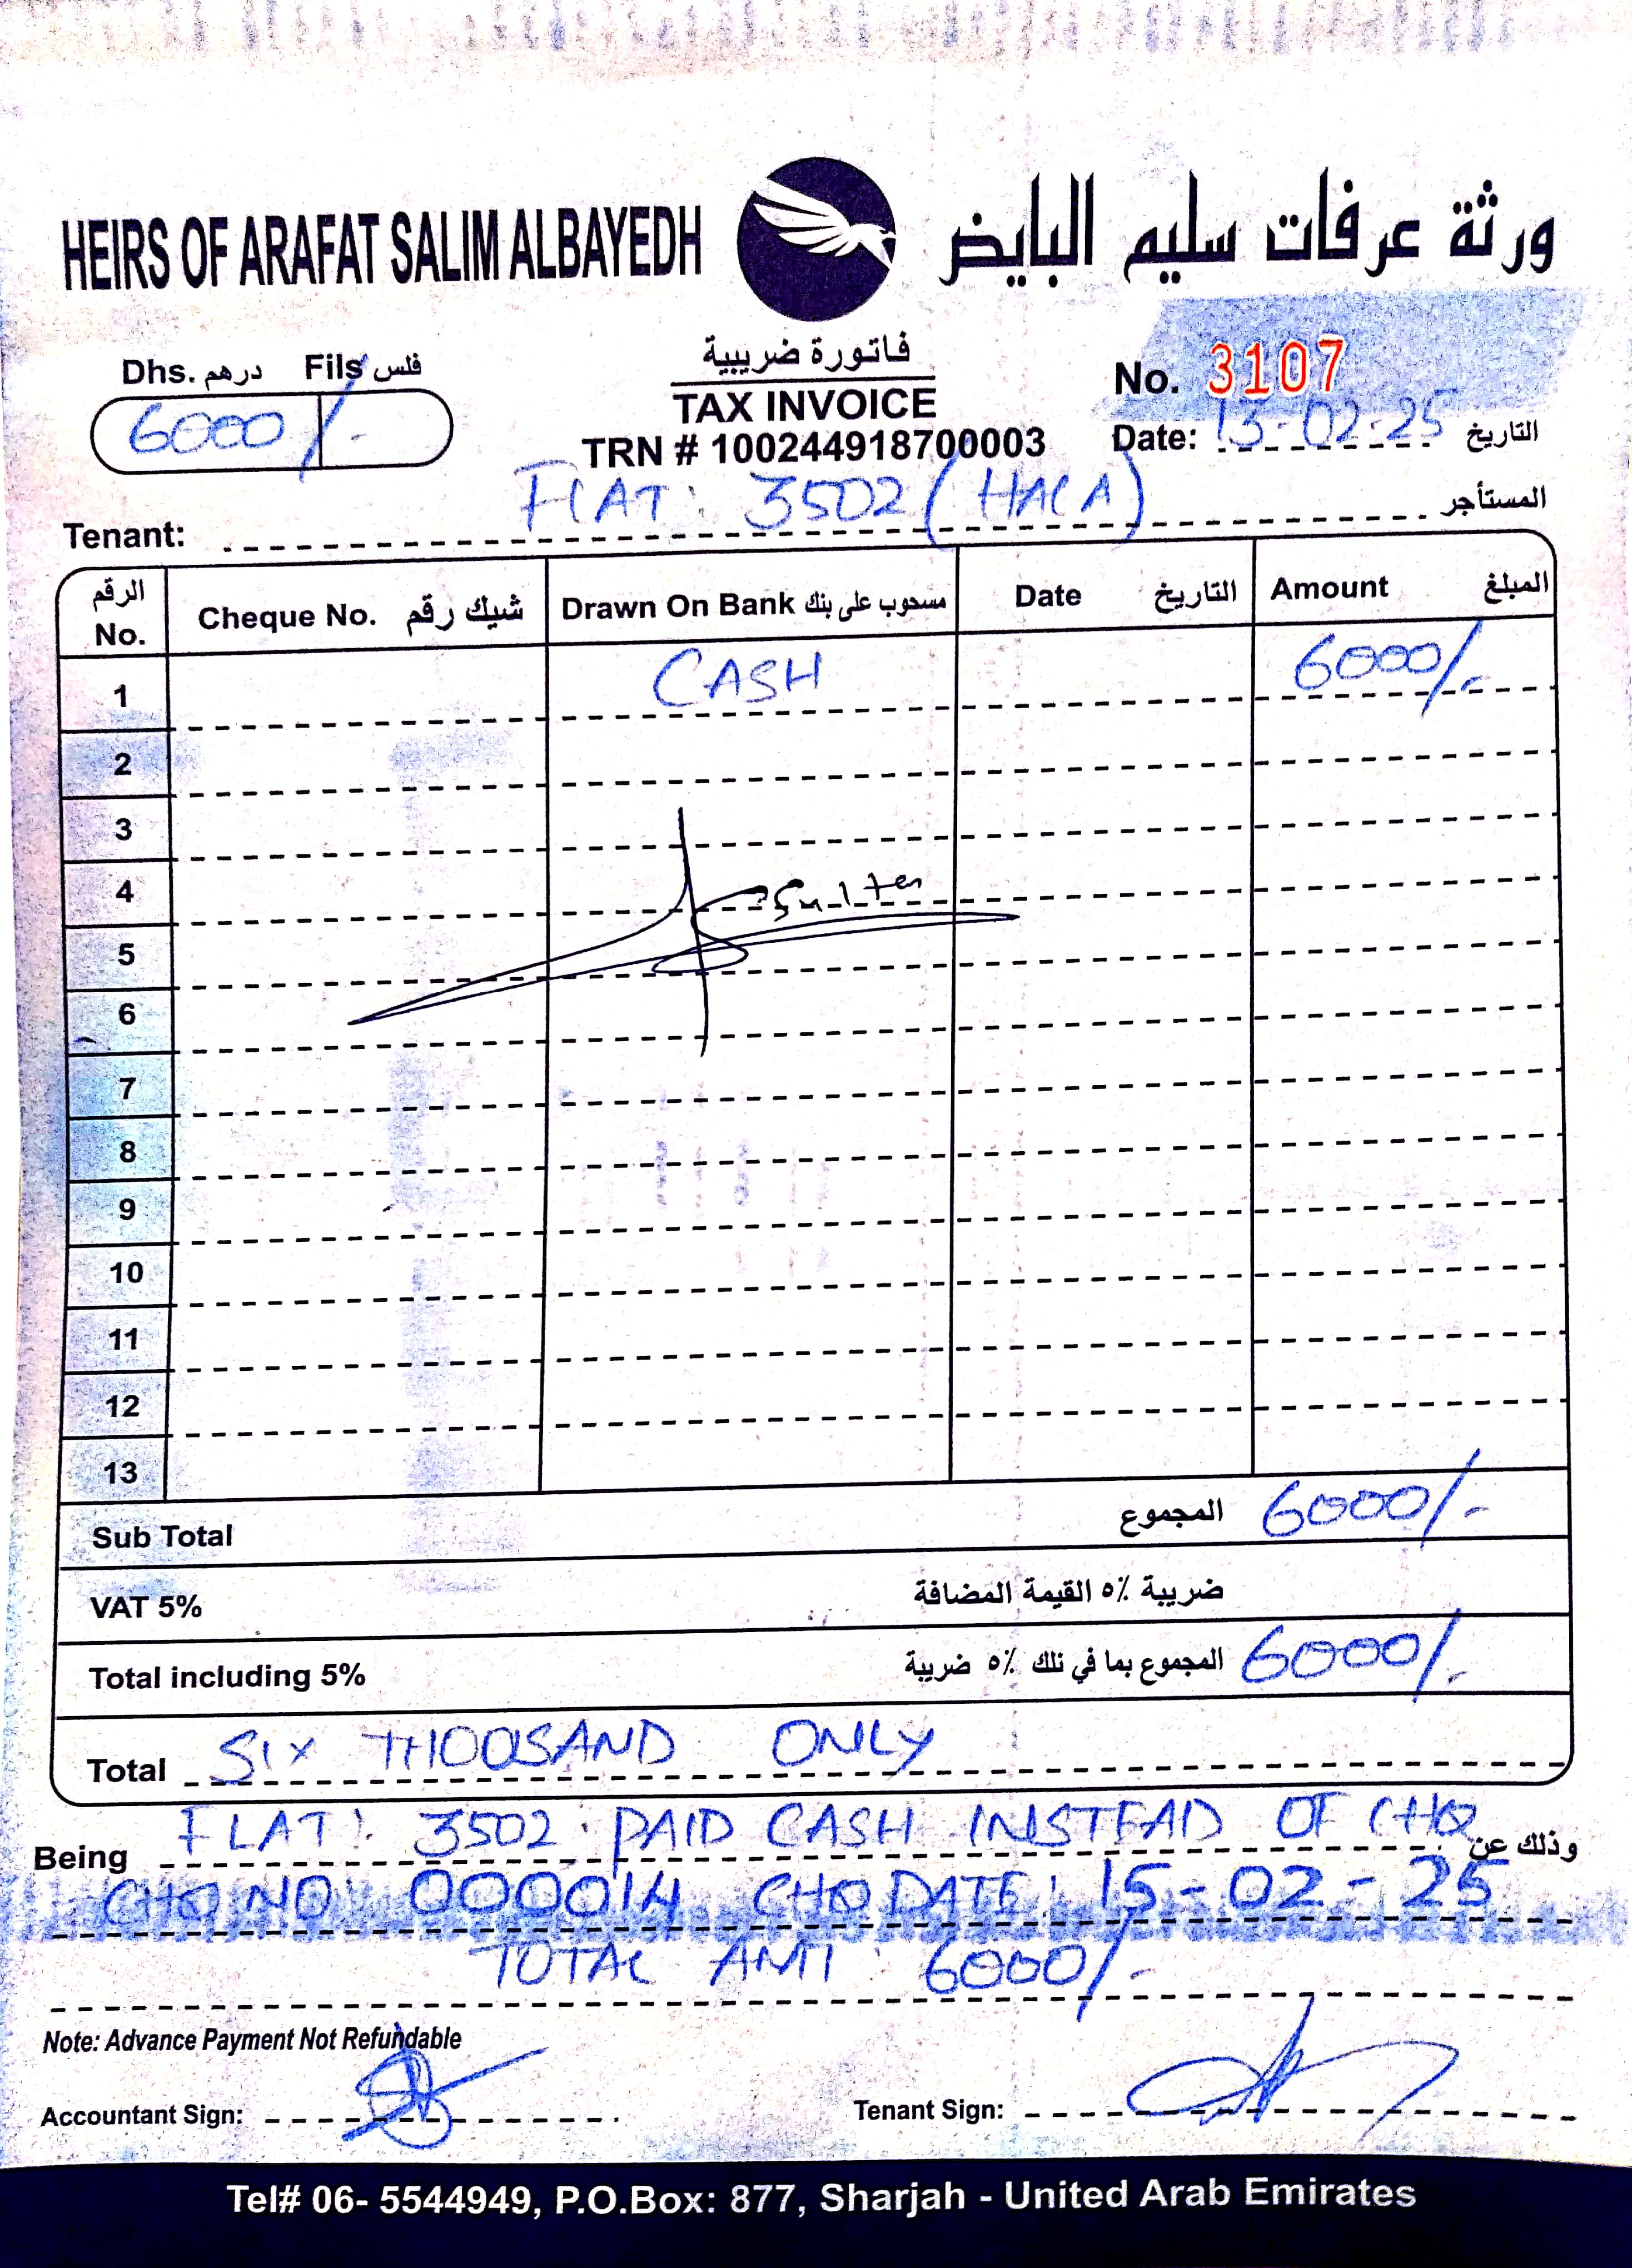 HEIRS OF ARAFAT SALIM ALBAYEDH ورثة عرفات سليم البايض
Dhs. درهم Fils فلس
6000/-
فاتورة ضريبية
TAX INVOICE
TRN # 100244918700003
No. 3107
Date: 13-02-25 التاريخ
Tenant: FLAT: 3502 (HALA) المستأجر
الرقم No. Cheque No. شيك رقم Drawn On Bank مسحوب على بنك Date التاريخ Amount المبلغ
1 CASH 6000/-
2
3
4 Sultan
5
6
7
8
9
10
11
12
13
Sub Total المجموع 6000/-
VAT 5% ضريبة ٥٪ القيمة المضافة
Total including 5% المجموع بما في تلك ٥٪ ضريبة 6000/-
Total SIX THOUSAND ONLY
Being FLAT: 3502. PAID CASH INSTEAD OF CHQ وذلك عن
CHQ NO: 000014 CHQ DATE: 15-02-25
TOTAL AMT: 6000/-
Note: Advance Payment Not Refundable
Accountant Sign: Tenant Sign:
Tel# 06- 5544949, P.O.Box: 877, Sharjah - United Arab Emirates